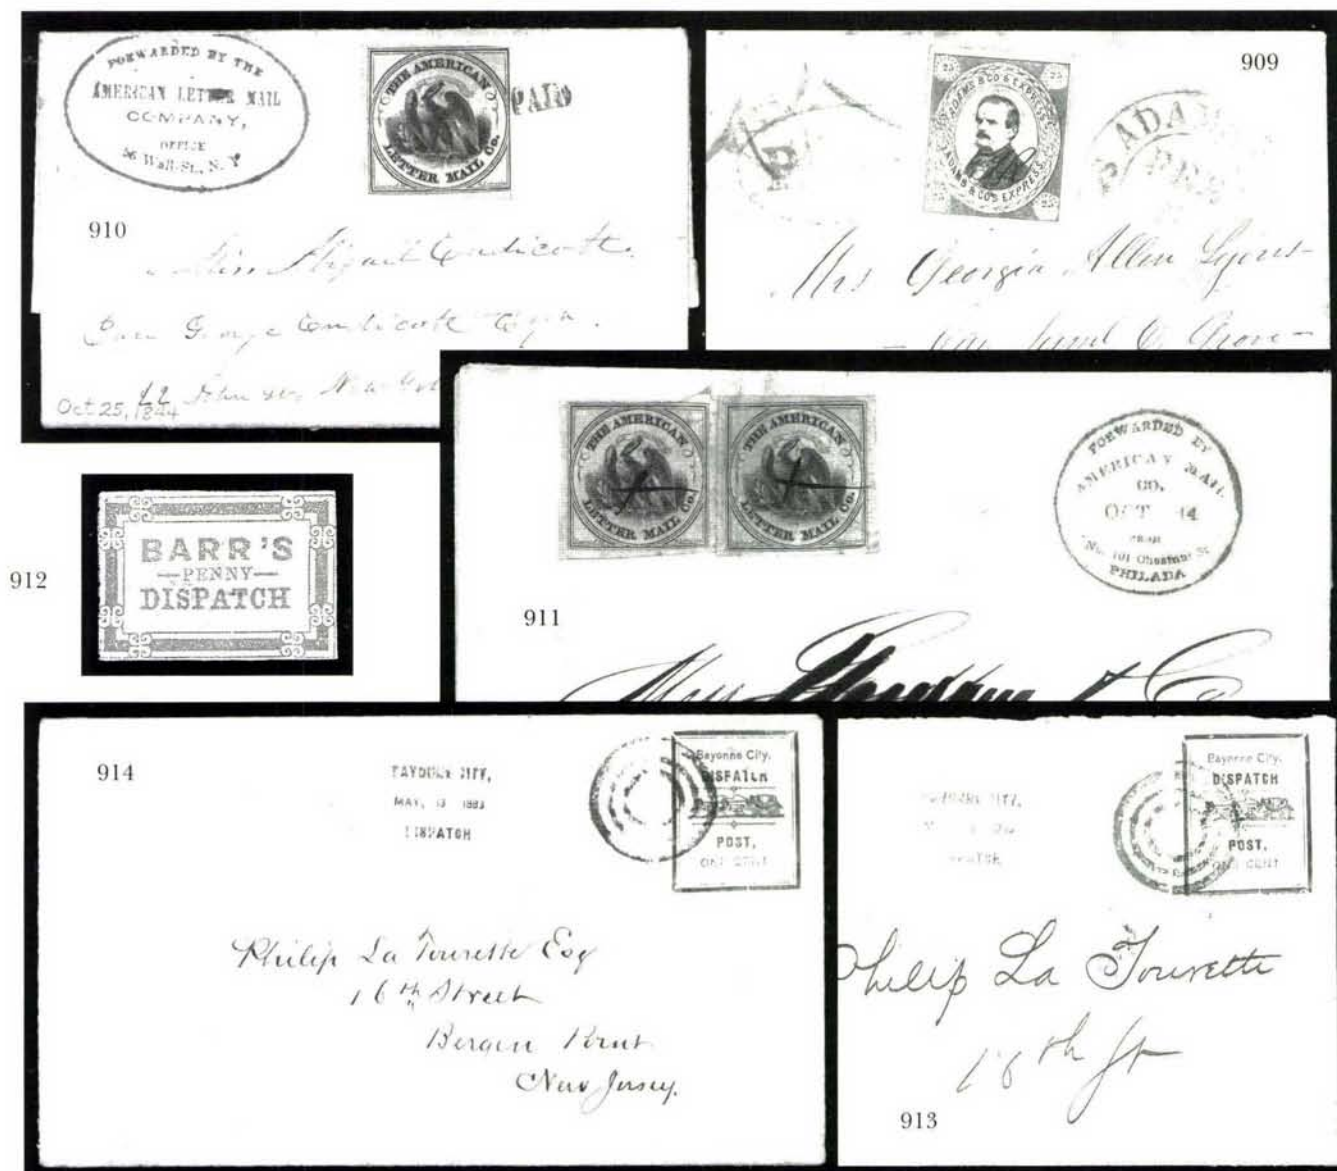 FORWARDED BY THE
AMERICAN LETTER MAIL
COMPANY,
OFFICE
56 Wall St., N. Y
THE AMERICAN
LETTER MAIL Co.
PAID
910
Miss Abigail Endicott
George Endicott
22 John New
Oct 25, 1844
909
25 25
ADAMS & CO'S EXPRESS
ADAMS & CO'S EXPRESS
25 25
ADAM
Mrs Georgia Allen Lyons
Grove
THE AMERICAN
LETTER MAIL Co.
THE AMERICAN
LETTER MAIL Co.
FORWARDED BY
AMERICAN MAIL
CO.
OCT 14
FROM
No. 101 Chestnut St
PHILADA
911
& Co
912
BARR'S
PENNY
DISPATCH
914
BAYONNE CITY,
MAY, 13 1883
DISPATCH
Bayonne City.
DISPATCH
POST,
ONE CENT
Philip La Tourette Esq
16th Street
Bergen Point
New Jersey.
CITY,
Bayonne City.
DISPATCH
POST,
ONE CENT
Philip La Tourette
16th St
913